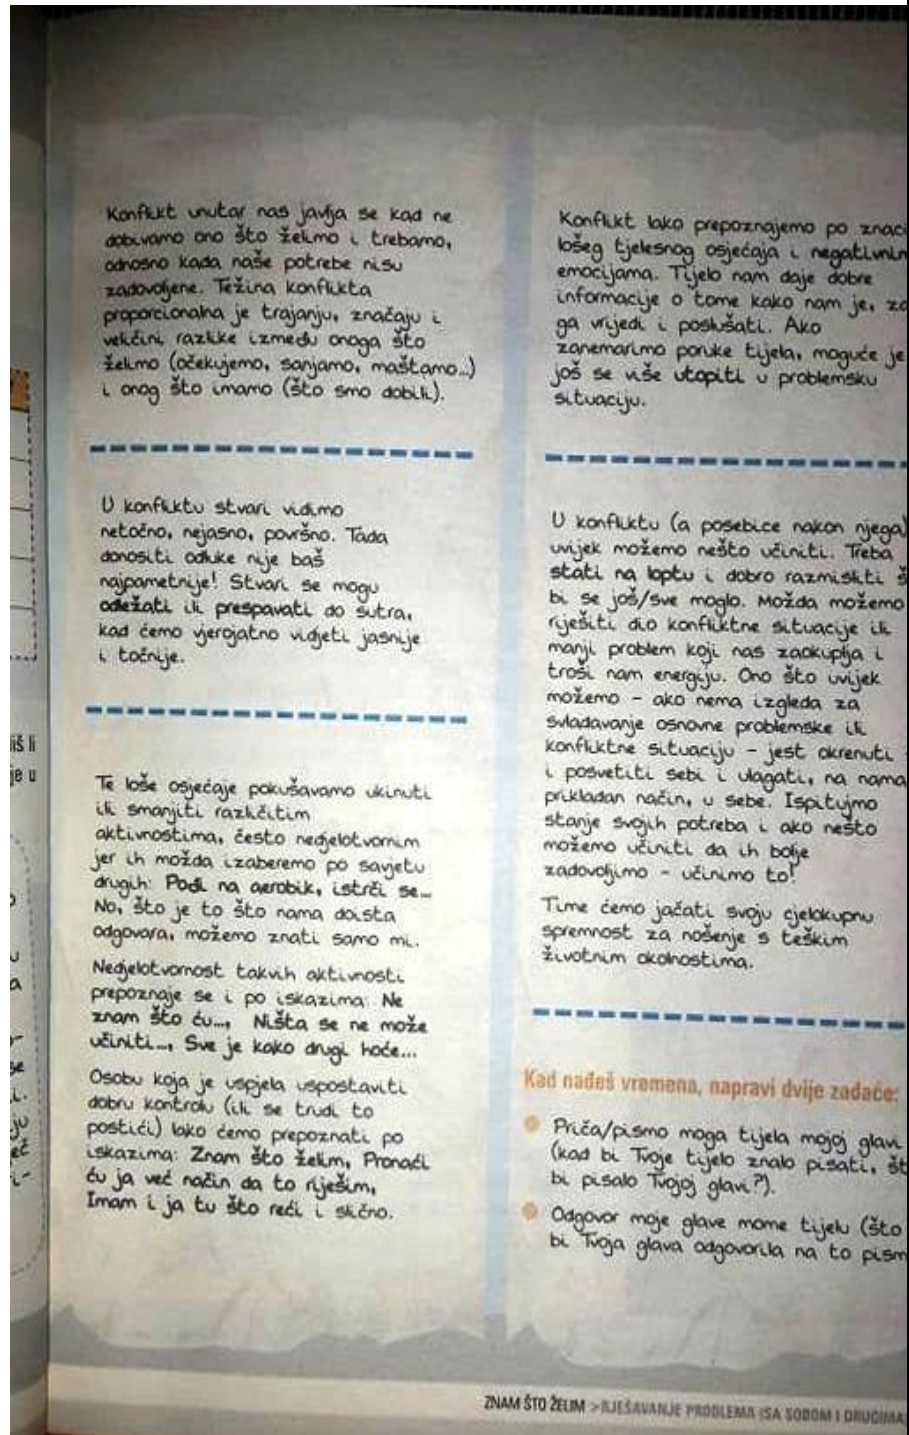 Konflikt unutar nas javlja se kad ne
dobivamo ono što želimo i trebamo,
odnosno kada naše potrebe nisu
zadovoljene. Težina konflikta
proporcionalna je trajanju, značaju i
veličini razlike između onoga što
želimo (očekujemo, sanjamo, maštamo...)
i onog što imamo (što smo dobili).
U konfliktu stvari vidimo
netočno, nejasno, površno. Tada
donositi odluke nije baš
najpametnije! Stvari se mogu
odležati ili prespavati do sutra,
kad ćemo vjerojatno vidjeti jasnije
i točnije.
Te loše osjećaje pokušavamo ukinuti
ili smanjiti različitim
aktivnostima, često nedjelotvornim
jer ih možda izaberemo po savjetu
drugih: Pođi na aerobik, istrči se...
No, što je to što nama doista
odgovara, možemo znati samo mi.
Nedjelotvornost takvih aktivnosti
prepoznaje se i po iskazima: Ne
znam što ću..., Ništa se ne može
učiniti..., Sve je kako drugi hoće...
Osobu koja je uspjela uspostaviti
dobru kontrolu (ili se trudi to
postići) lako ćemo prepoznati po
iskazima: Znam što želim, Pronaći
ću ja već način da to riješim,
Imam i ja tu što reći i slično.
Konflikt lako prepoznajemo po znaci
lošeg tjelesnog osjećaja i negativnim
emocijama. Tijelo nam daje dobre
informacije o tome kako nam je, za
ga vrijedi i poslušati. Ako
zanemarimo poruke tijela, moguće je
još se više utopiti u problemsku
situaciju.
U konfliktu (a posebice nakon njega)
uvijek možemo nešto učiniti. Treba
stati na loptu i dobro razmisliti š
bi se još/sve moglo. Možda možemo
riješiti dio konfliktne situacije ili
manji problem koji nas zaokuplja i
troši nam energiju. Ono što uvijek
možemo - ako nema izgleda za
svladavanje osnovne problemske ili
konfliktne situaciju - jest okrenuti
i posvetiti sebi i ulagati, na nama
prikladan način, u sebe. Ispitujmo
stanje svojih potreba i ako nešto
možemo učiniti da ih bolje
zadovoljimo - učinimo to!
Time ćemo jačati svoju cjelokupnu
spremnost za nošenje s teškim
životnim okolnostima.
Kad nađeš vremena, napravi dvije zadaće:
Priča/pismo moga tijela mojoj glavi
(kad bi Tvoje tijelo znalo pisati, št
bi pisalo Tvojoj glavi?).
Odgovor moje glave mome tijelu (što
bi Tvoja glava odgovorila na to pism
ZNAM ŠTO ŽELIM > RJEŠAVANJE PROBLEMA (SA SOBOM I DRUGIMA